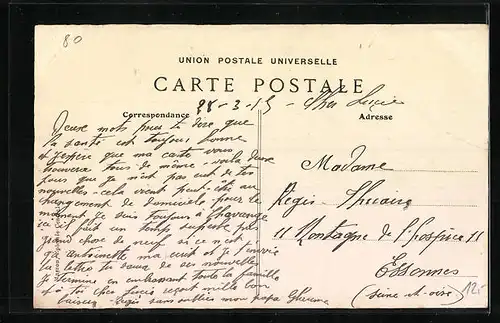 80
UNION POSTALE UNIVERSELLE
CARTE POSTALE
Correspondance
Adresse
28-3-15 - Cher Lucie
Deux mots pour te dire que
la santé est toujours bonne
et j'espère que ma carte vous
trouvera tous de même - voilà deux
jours que je n'ai pas eut de tes
nouvelles - cela vient peut-être au
changement de domicile pour le
moment je suis toujours à
ici il fait un temps superbe pas
grand chose de neuf si ce n'est
qu'a antoinette m'a écrit et je t'envoie
la lettre tu auras de ses nouvelles
Je termine en embrassant toute la famille
et à toi cher Lucie reçoit mille bon
baiser Régis sans oublier mon papa
Madame
Régis
11 Montagne de l'hospice 11
Essonnes
(Seine et oise)
12.-